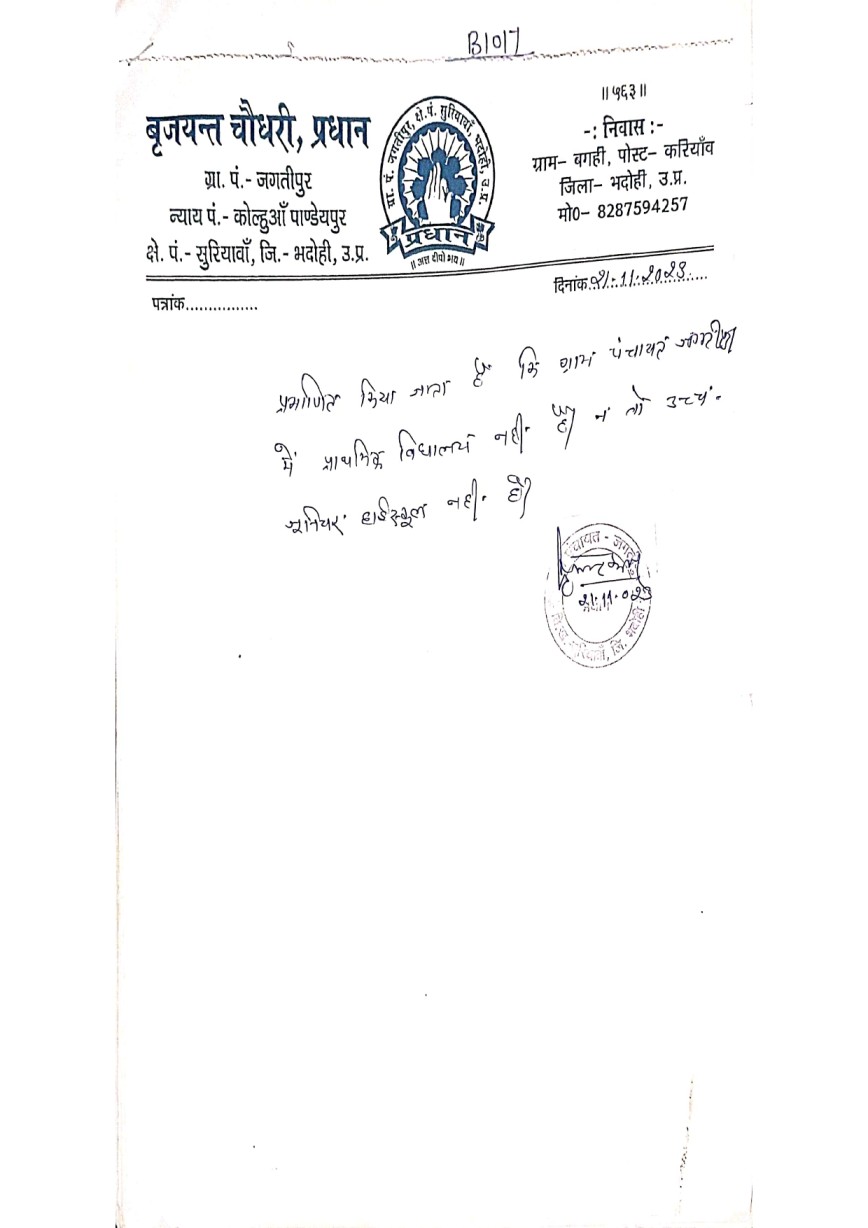 B1017
॥ ५६३॥
बृजयन्त चौधरी, प्रधान
ग्रा. पं.- जगतीपुर
न्याय पं.- कोल्हुआँ पाण्डेयपुर
क्षे. पं.- सुरियावाँ, जि.- भदोही, उ.प्र.
ग्रा. पं. जगतीपुर, क्षे.पं. सुरियावाँ, भदोही, उ.प्र.
प्रधान
॥ अत्त दीपो भव॥
-: निवास :-
ग्राम- बगही, पोस्ट- करियाँव
जिला- भदोही, उ.प्र.
मो0- 8287594257
पत्रांक................
दिनांक 21.11.2023
प्रमाणित किया जाता है कि ग्राम पंचायत
में प्राथमिक विधालय नहीं है न तो उच्च
जूनियर हाईस्कूल नहीं है
पंचायत - जगत
21.11.023
सुरियावाँ, जि. भदोही